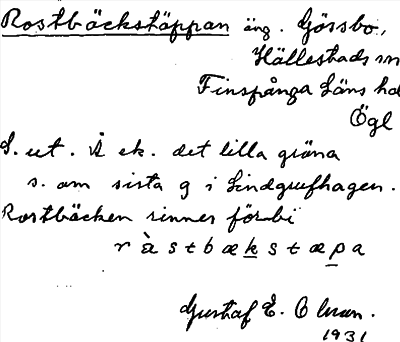 Rostbäckstäppan äng. Gössbo,
Hällestads sn
Finspånga Läns hd
Ögl
S. ut. Å ek. det lilla gräna
s. om sista g i Lindgrufhagen.
Rostbäcken rinner förbi
r à s t b æ k s t æ p a
Gustaf E. Olsson.
1931